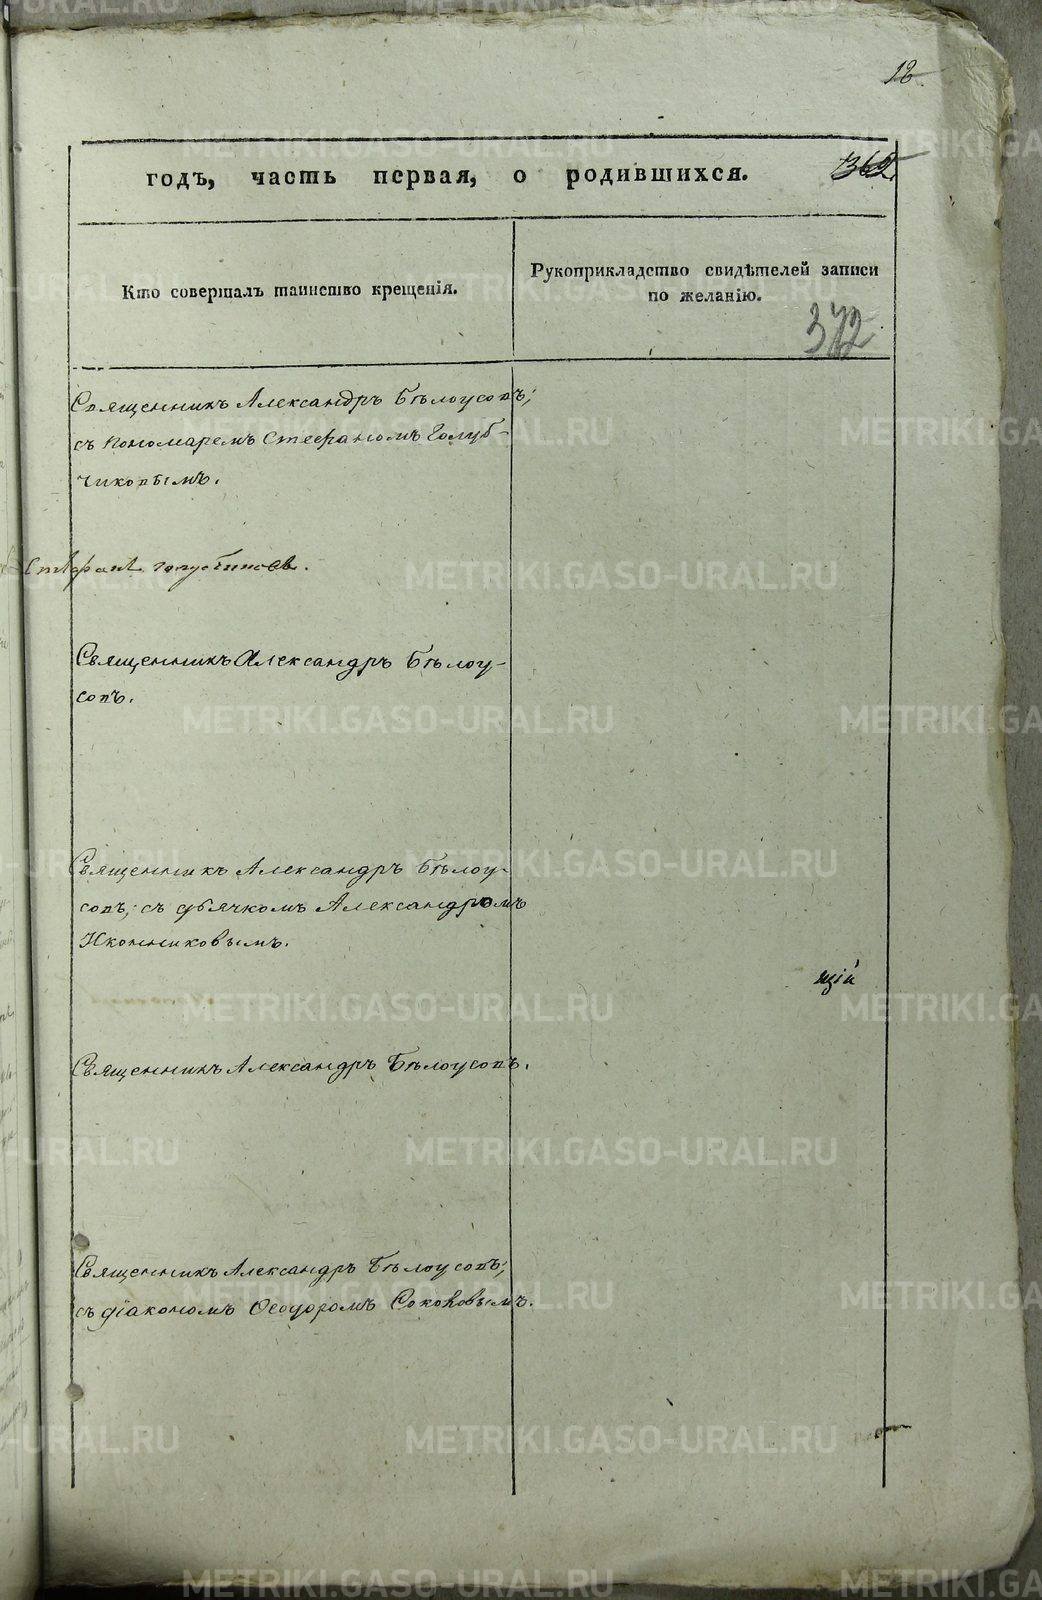 12
годъ, часть первая, о родившихся.
362.
Кто совершалъ таинство крещенія.
Рукоприкладство свидѣтелей записи
по желанію.
372
Священникъ Александръ Бѣлоусовъ;
съ Пономаремъ Стефаномъ Голуб-
чиковымъ.
Стефанъ
Священникъ Александръ Бѣлоу-
совъ.
Священникъ Александръ Бѣлоу-
совъ; съ дьячкомъ Александромъ
Иконниковымъ.
щій
Священникъ Александръ Бѣлоусовъ.
Священникъ Александръ Бѣлоусовъ;
съ діакономъ Ѳеодоромъ Соковымъ.
METRIKI.GASO-URAL.RU